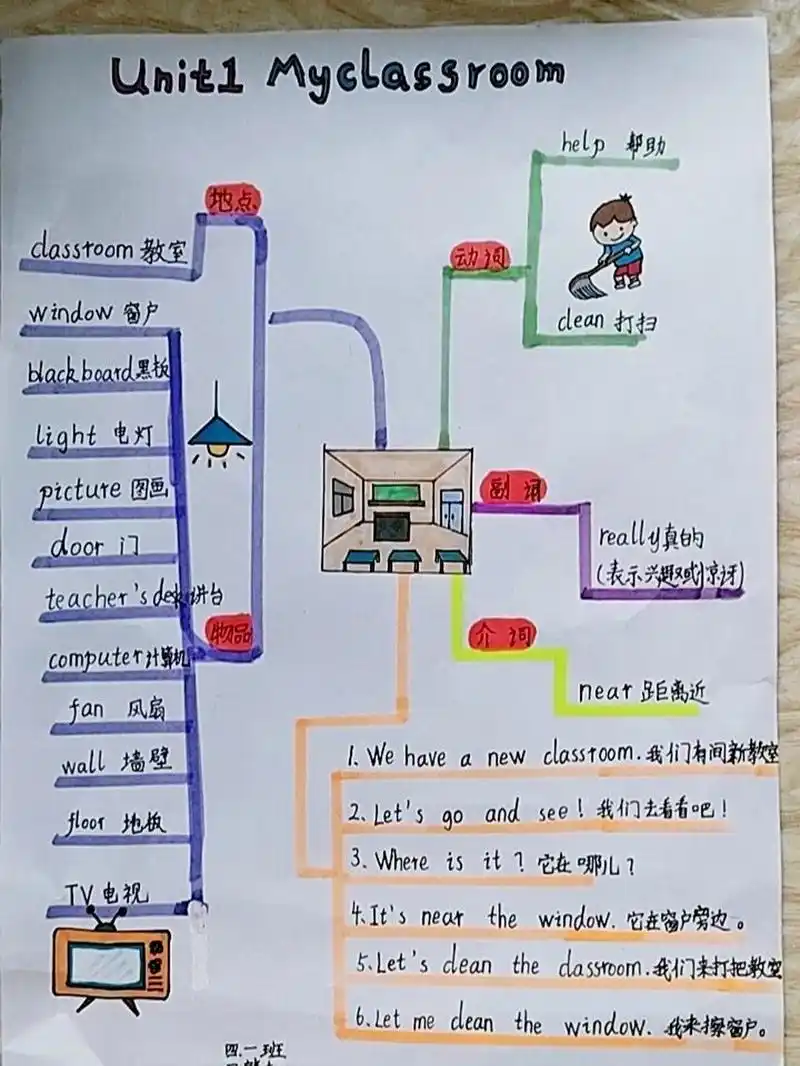 Unit1 Myclassroom
地点
classroom 教室
window 窗户
blackboard 黑板
light 电灯
picture 图画
door 门
teacher's desk 讲台
物品
computer 计算机
fan 风扇
wall 墙壁
floor 地板
TV 电视
动词
help 帮助
clean 打扫
副词
really 真的
(表示兴趣或惊讶)
介词
near 距离近
1. We have a new classroom. 我们有间新教室
2. Let's go and see! 我们去看看吧!
3. Where is it? 它在哪儿?
4. It's near the window. 它在窗户旁边。
5. Let's clean the classroom. 我们来打把教室
6. Let me clean the window. 我来擦窗户。
四.一班